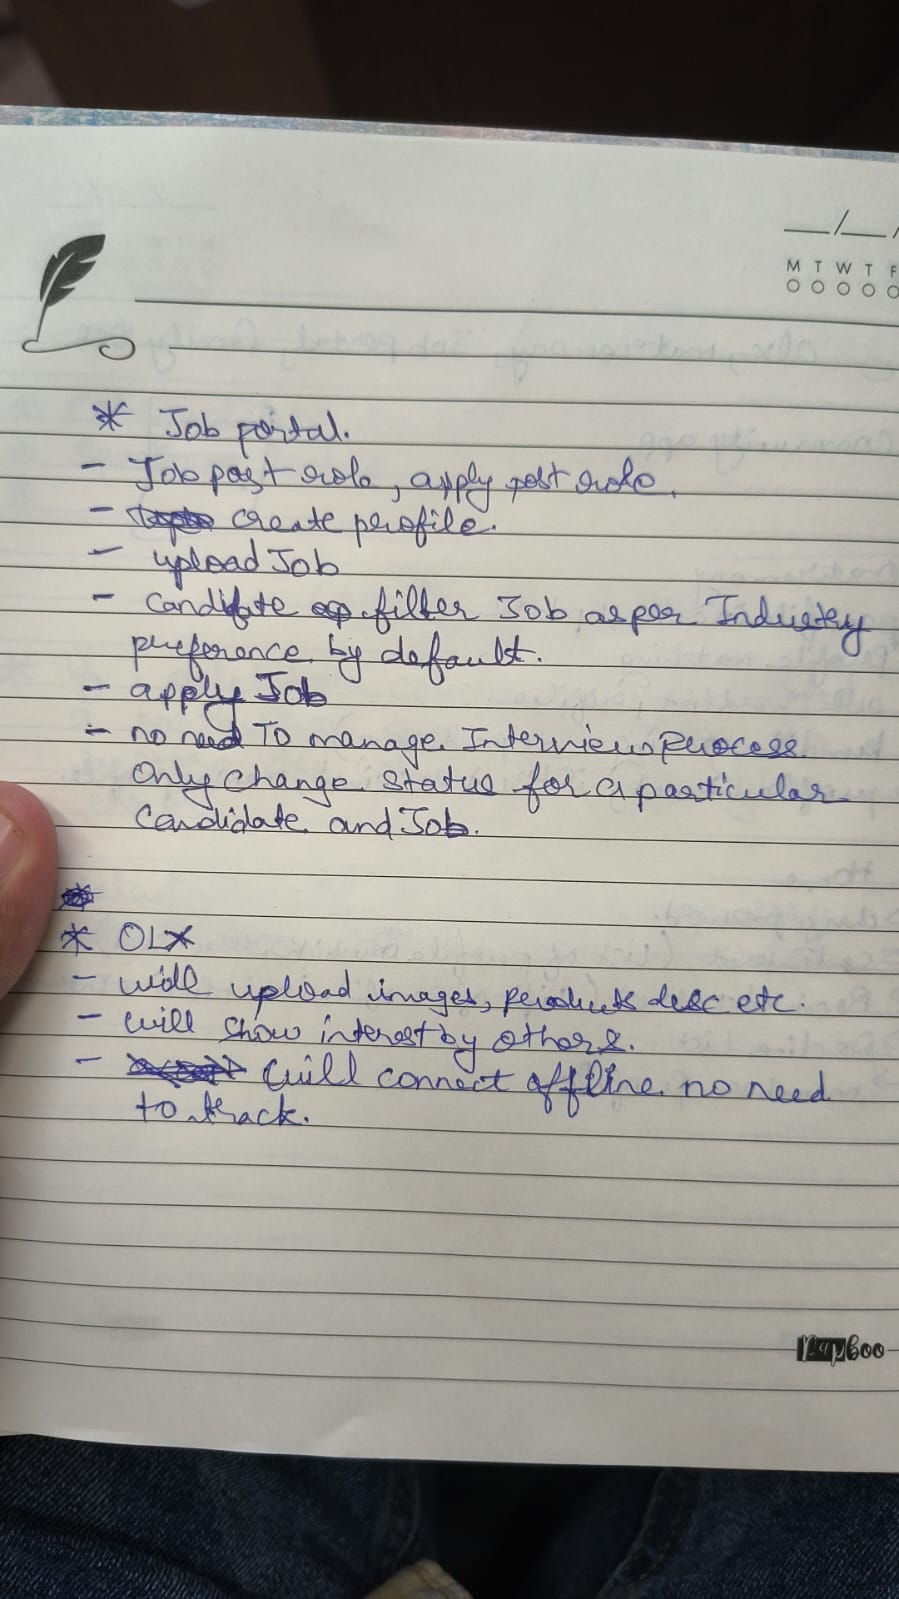 __/__/
M T W T F
* Job portal.
- Job post role, apply post role.
- create profile.
- upload Job
- Candidate filter Job as per Industry
preference by default.
- apply Job
- no need To manage Interview process
Only change status for a particular
Candidate and Job.
* OLX
- will upload images, products desc etc.
- will show interest by others.
- will connect offline no need
to track.